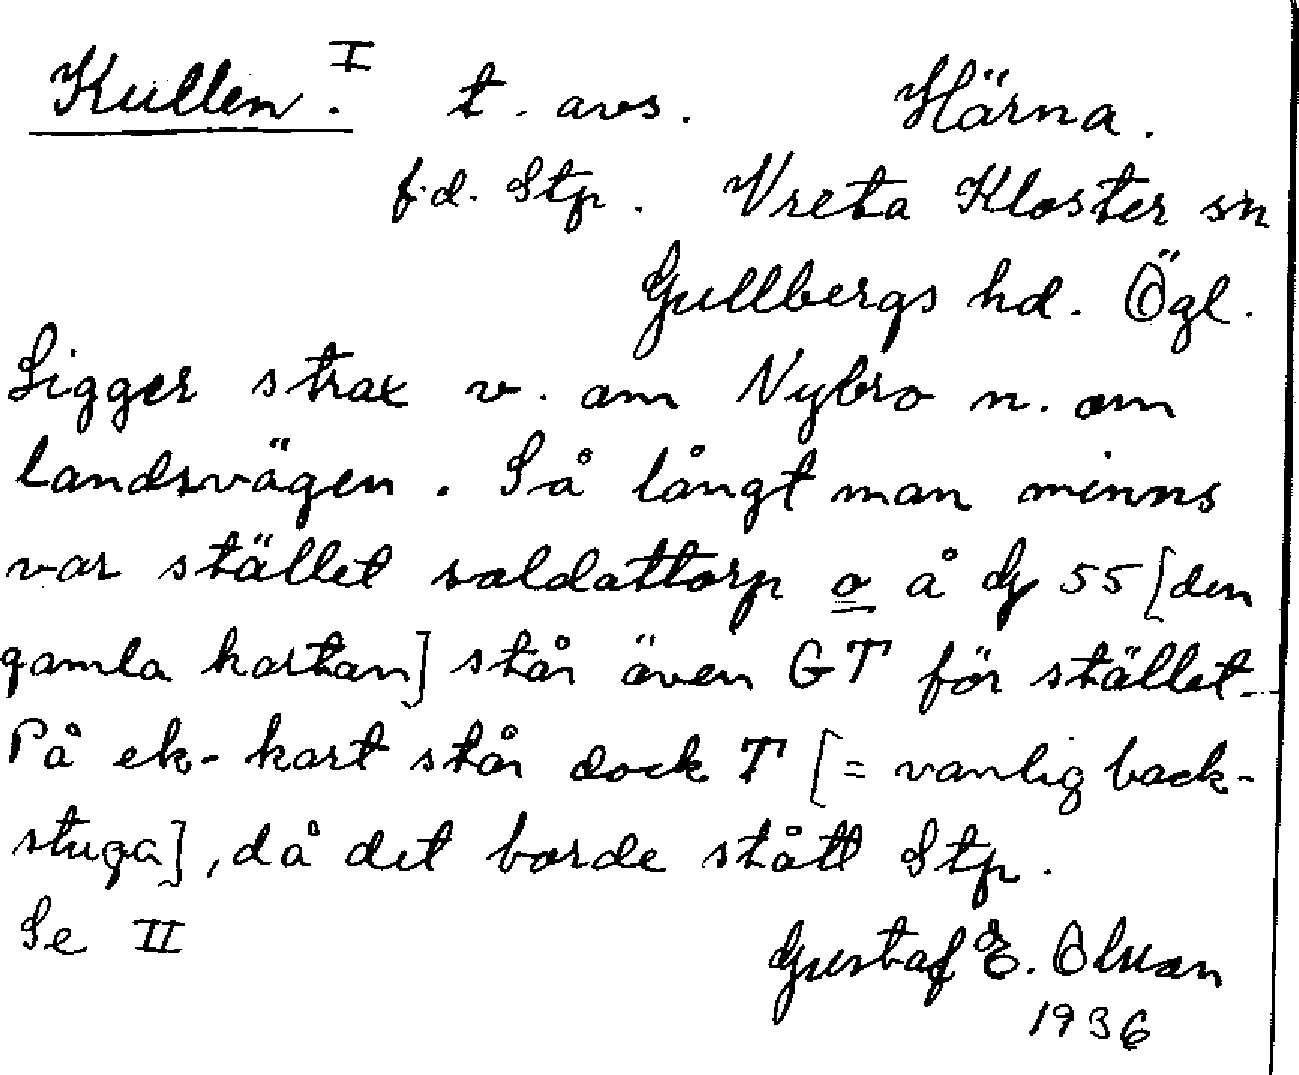 Kullen. I t. avs. Härna.
f.d. Stp. Vreta Kloster sn
Gullbergs hd. Ögl.
Ligger strax v. om Nybro n. om
landsvägen. Så långt man minns
var stället soldattorp o å dg 55 [den
gamla kartan] står även GT för stället.
På ek-kart står dock T [= vanlig back-
stuga], då det borde stått Stp.
Se II Gustaf E. Olsson
1936